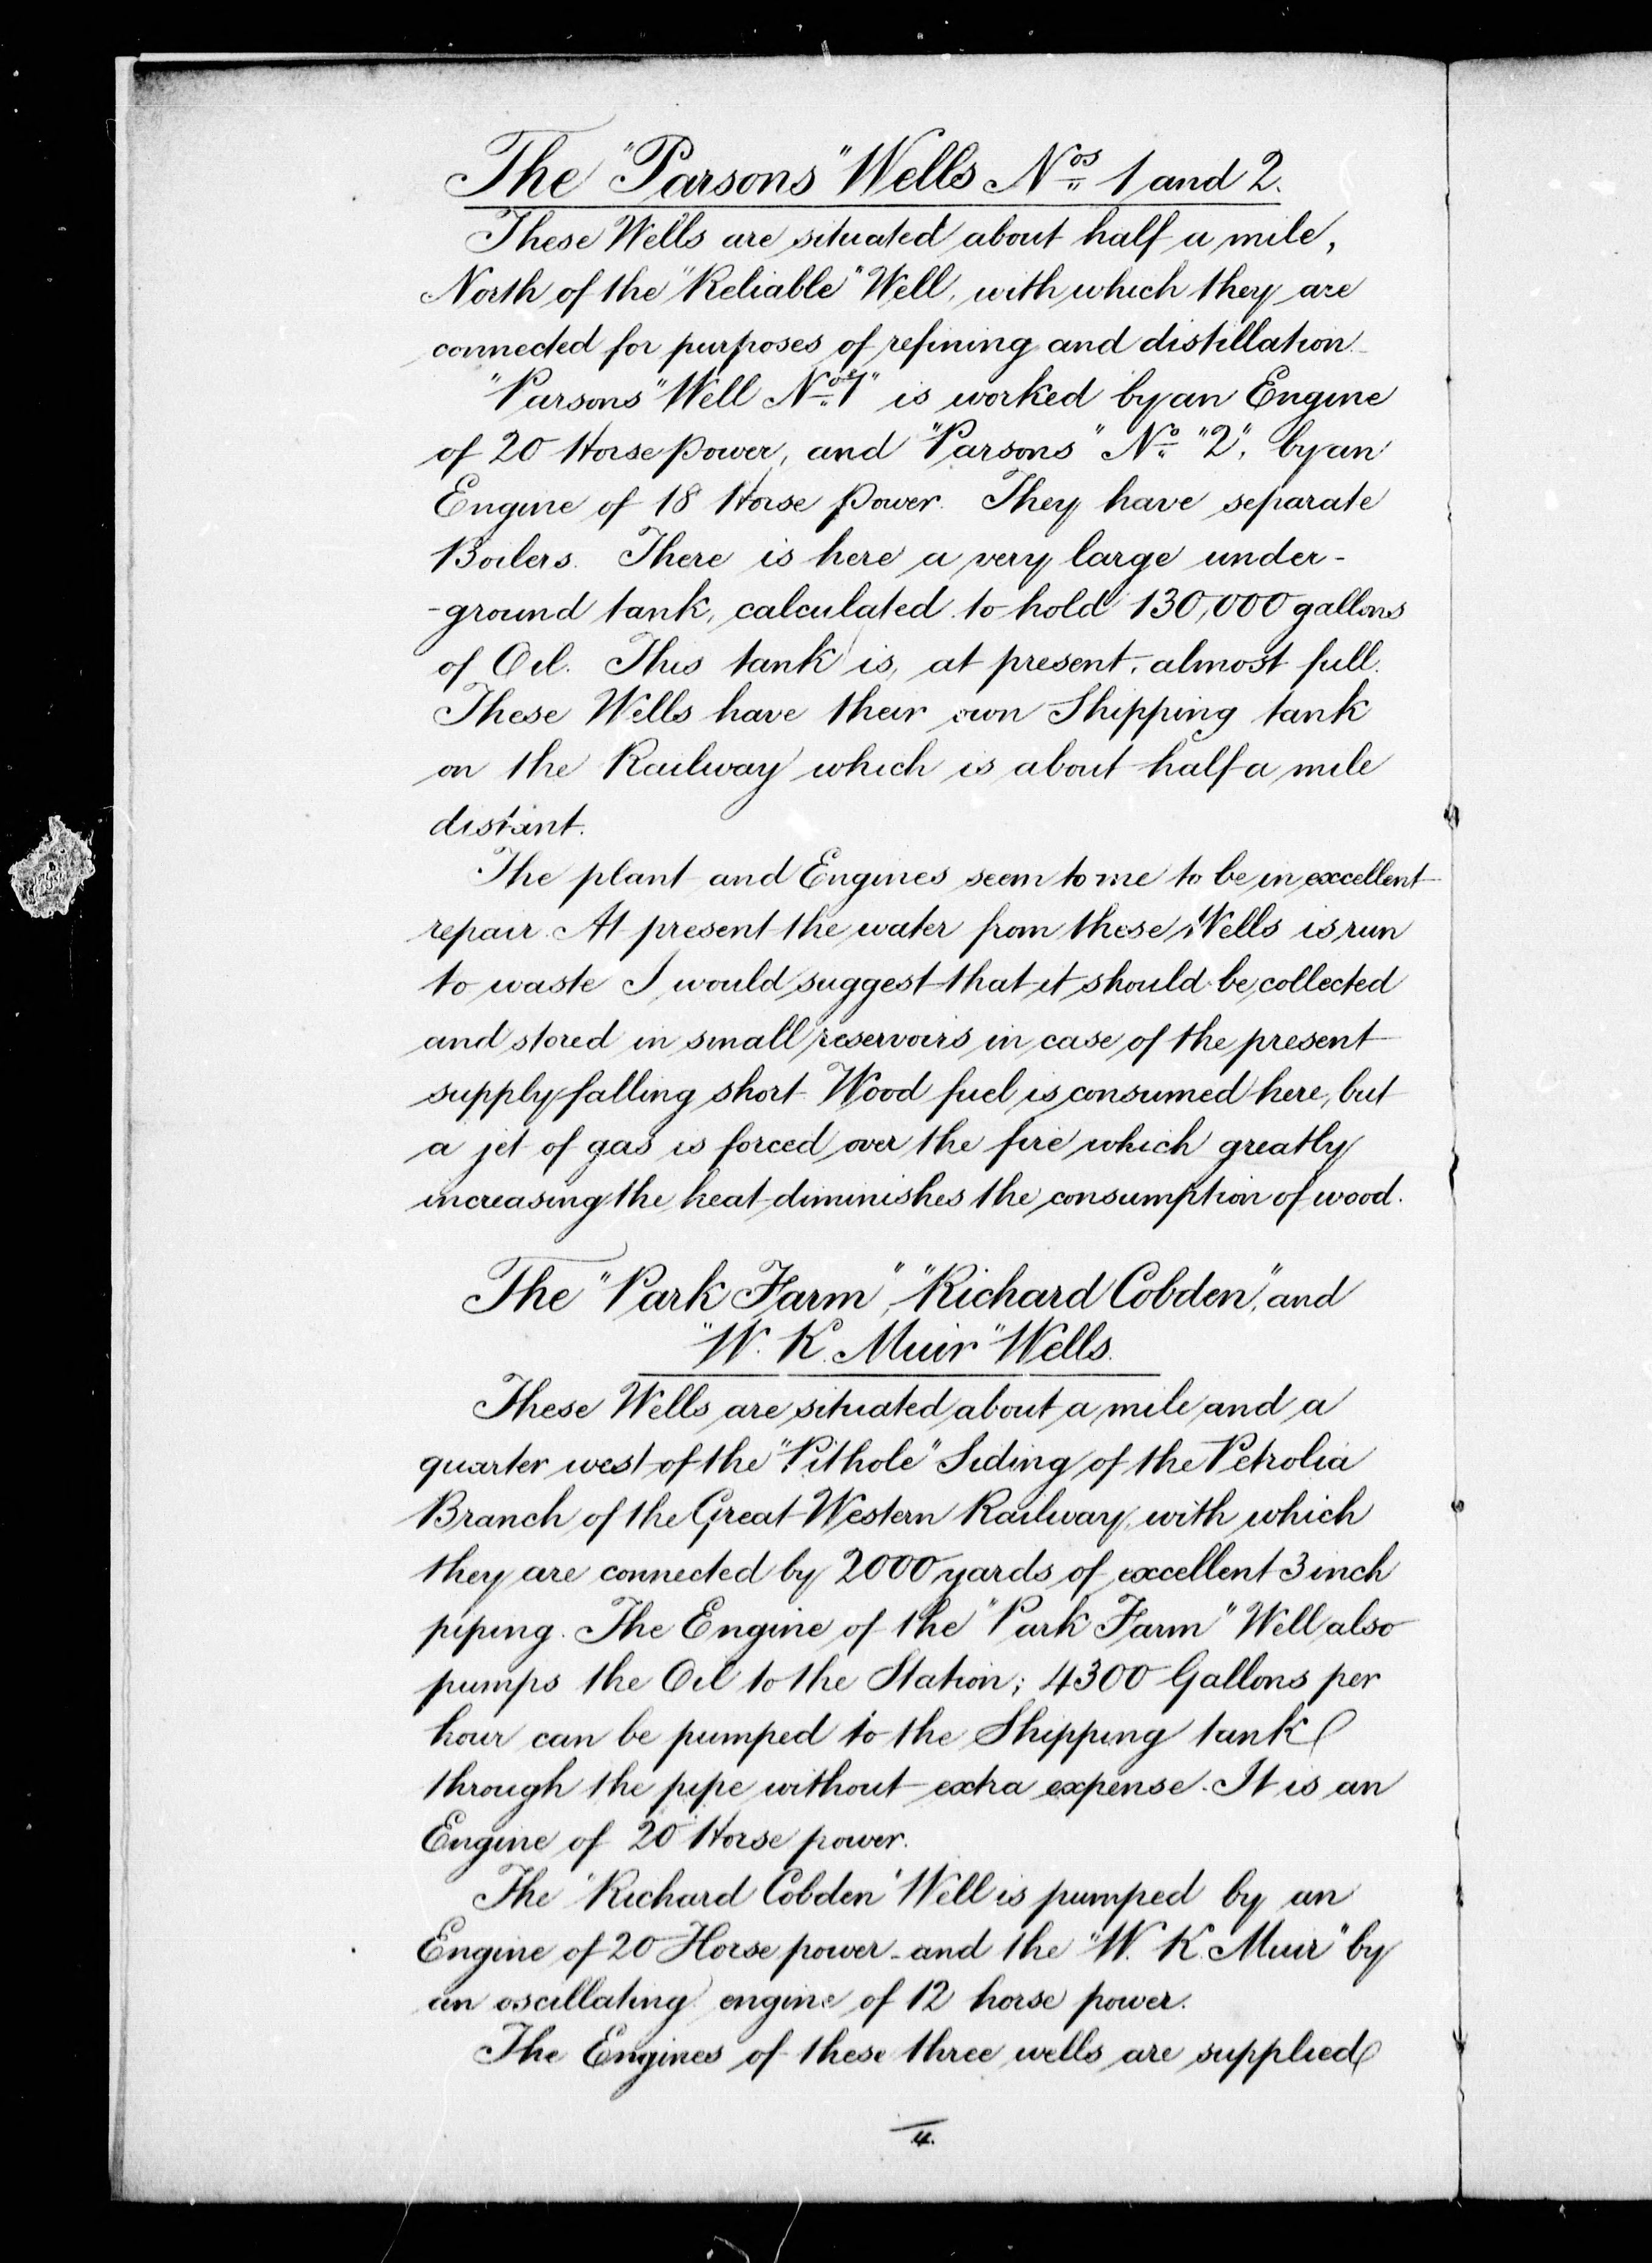 The "Parsons" Wells Nos 1 and 2.
These Wells are situated about half a mile,
North of the "Reliable" Well, with which they are
connected for purposes of refining and distillation.
"Parsons" Well No "1" is worked by an Engine
of 20 Horse power, and "Parsons" No "2", by an
Engine of 18 Horse power. They have separate
Boilers. There is here a very large under-
-ground tank, calculated to hold 130,000 gallons
of Oil. This tank is, at present, almost full.
These Wells have their own Shipping tank
on the Railway which is about half a mile
distant.
The plant and Engines seem to me to be in excellent
repair. At present the water from these Wells is run
to waste I would suggest that it should be collected
and stored in small reservoirs in case of the present
supply falling short. Wood fuel is consumed here, but
a jet of gas is forced over the fire which greatly
increasing the heat diminishes the consumption of wood.
The "Park Farm", "Richard Cobden", and
"W. K. Muir" Wells.
These Wells are situated about a mile and a
quarter west of the "Pithole" Siding of the Petrolia
Branch of the Great Western Railway, with which
they are connected by 2000 yards of excellent 3 inch
piping. The Engine of the "Park Farm" Well also
pumps the Oil to the Station; 4300 Gallons per
hour can be pumped to the Shipping tank
through the pipe without extra expense. It is an
Engine of 20 Horse power.
The "Richard Cobden" Well is pumped by an
Engine of 20 Horse power and the "W. K. Muir" by
an oscillating engine of 12 horse power.
The Engines of these three wells are supplied
4.